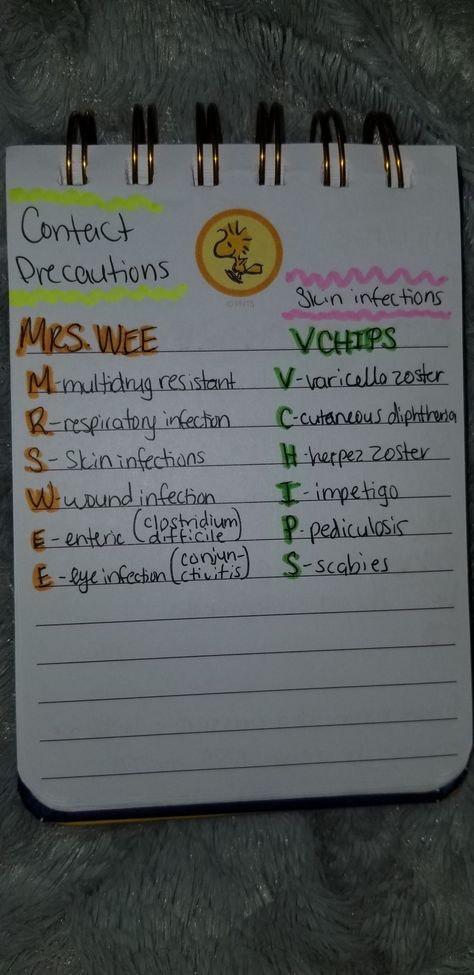 Contact
Precautions
© PNTS
MRS. WEE
M-multidrug resistant
R-respiratory infection
S - Skin infections
W-wound infection
E - enteric (clostridium difficile)
E - eye infection (conjunctivitis)
Skin infections
VCHIPS
V-varicello zoster
C-cutaneous diphtheria
H-herpez zoster
I - impetigo
P-pediculosis
S-scabies